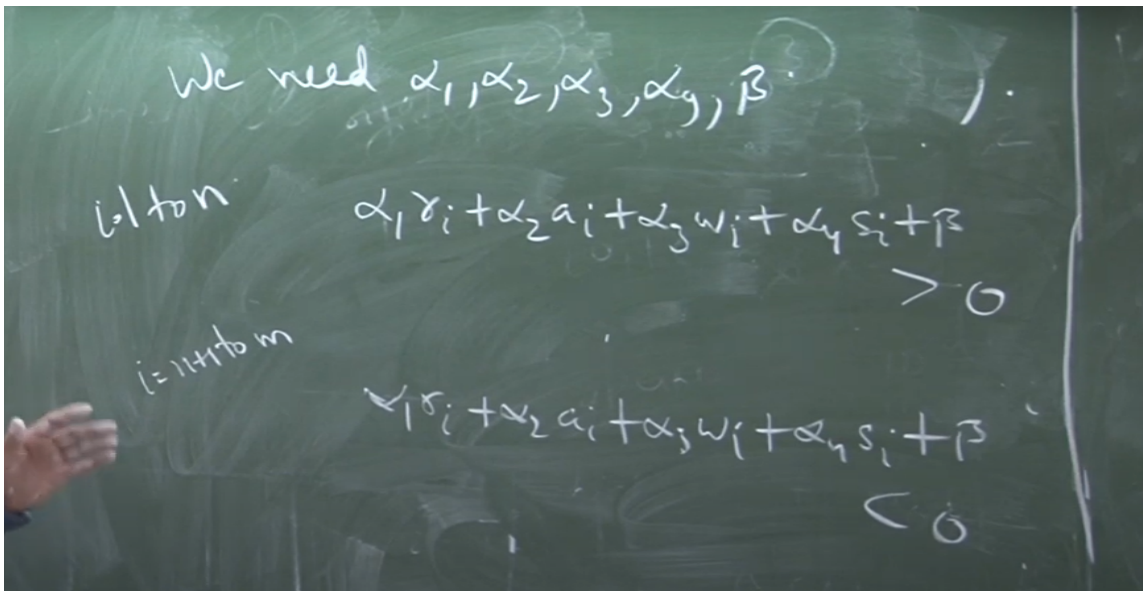 We need α₁, α₂, α₃, α₄, β
i=1 to n
α₁ r_i + α₂ a_i + α₃ w_i + α₄ s_i + β
> 0
i = n+1 to m
α₁ r_i + α₂ a_i + α₃ w_i + α₄ s_i + β
< 0